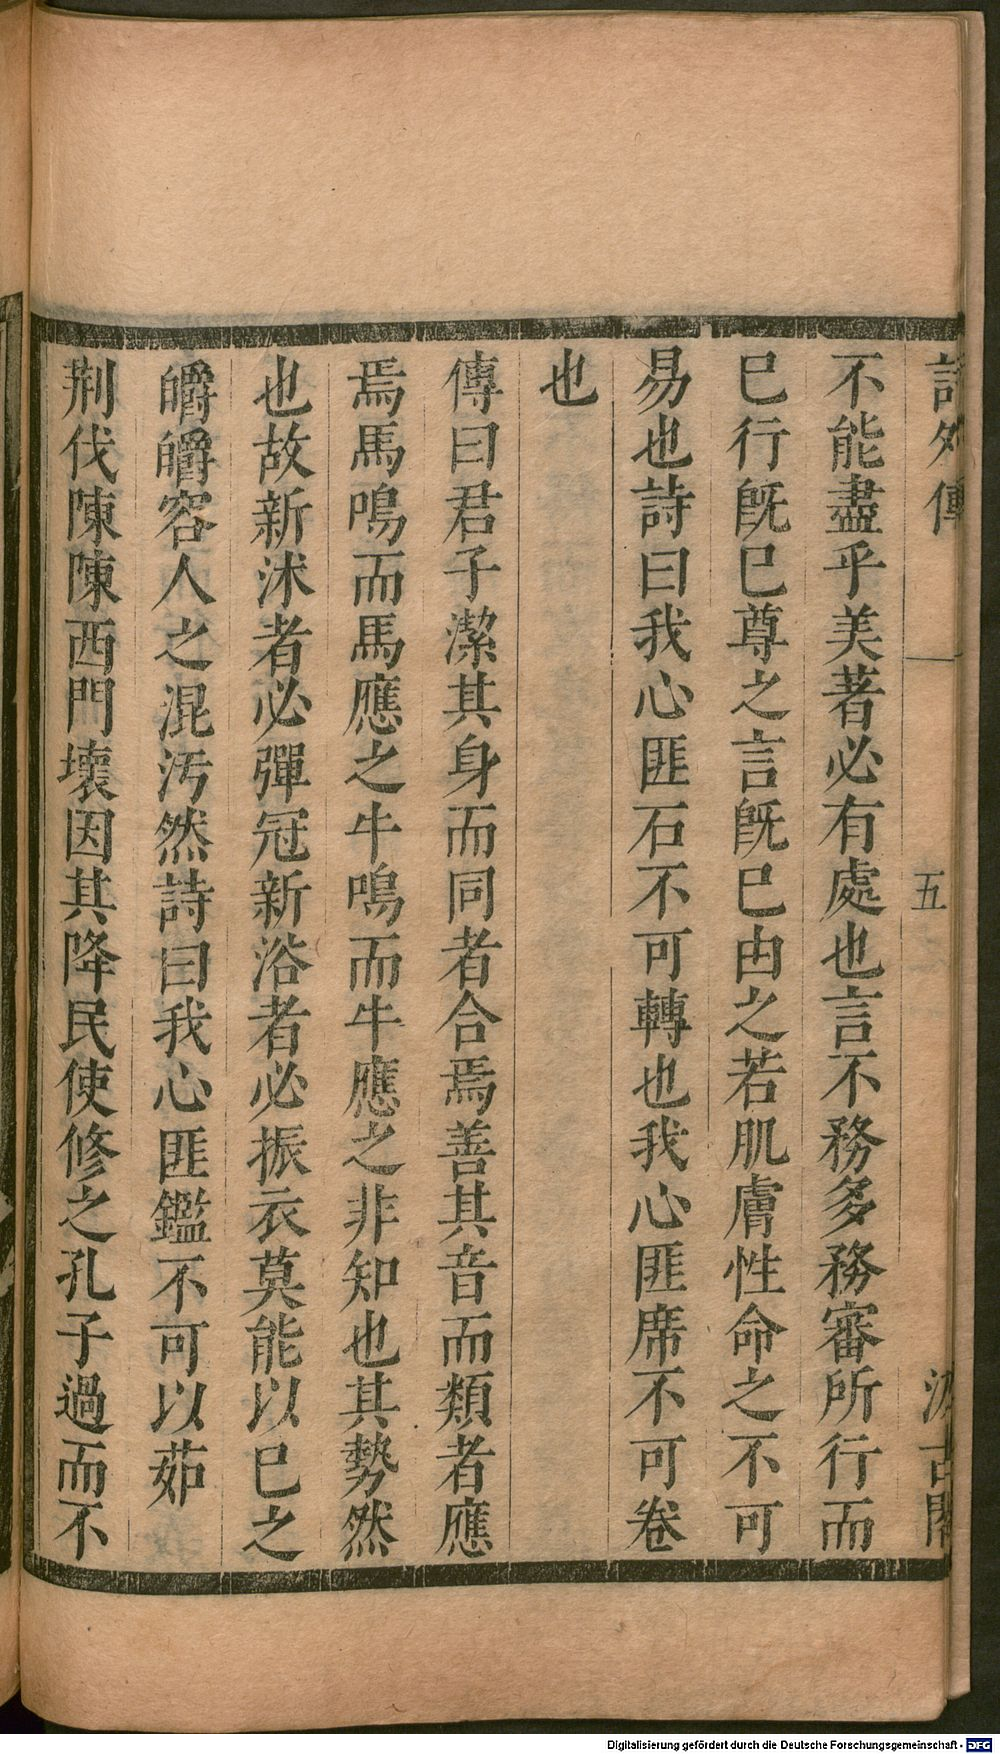 詩外傳 一 五 汲古閣
不能盡乎美著必有處也言不務多務審所行而
巳行旣巳尊之言旣巳由之若肌膚性命之不可
易也詩曰我心匪石不可轉也我心匪席不可卷
也
傳曰君子潔其身而同者合焉善其音而類者應
焉馬鳴而馬應之牛鳴而牛應之非知也其勢然
也故新沭者必彈冠新浴者必振衣莫能以巳之
皭皭容人之混汚然詩曰我心匪鑑不可以茹
荆伐陳陳西門壞因其降民使修之孔子過而不
Digitalisierung gefördert durch die Deutsche Forschungsgemeinschaft - DFG